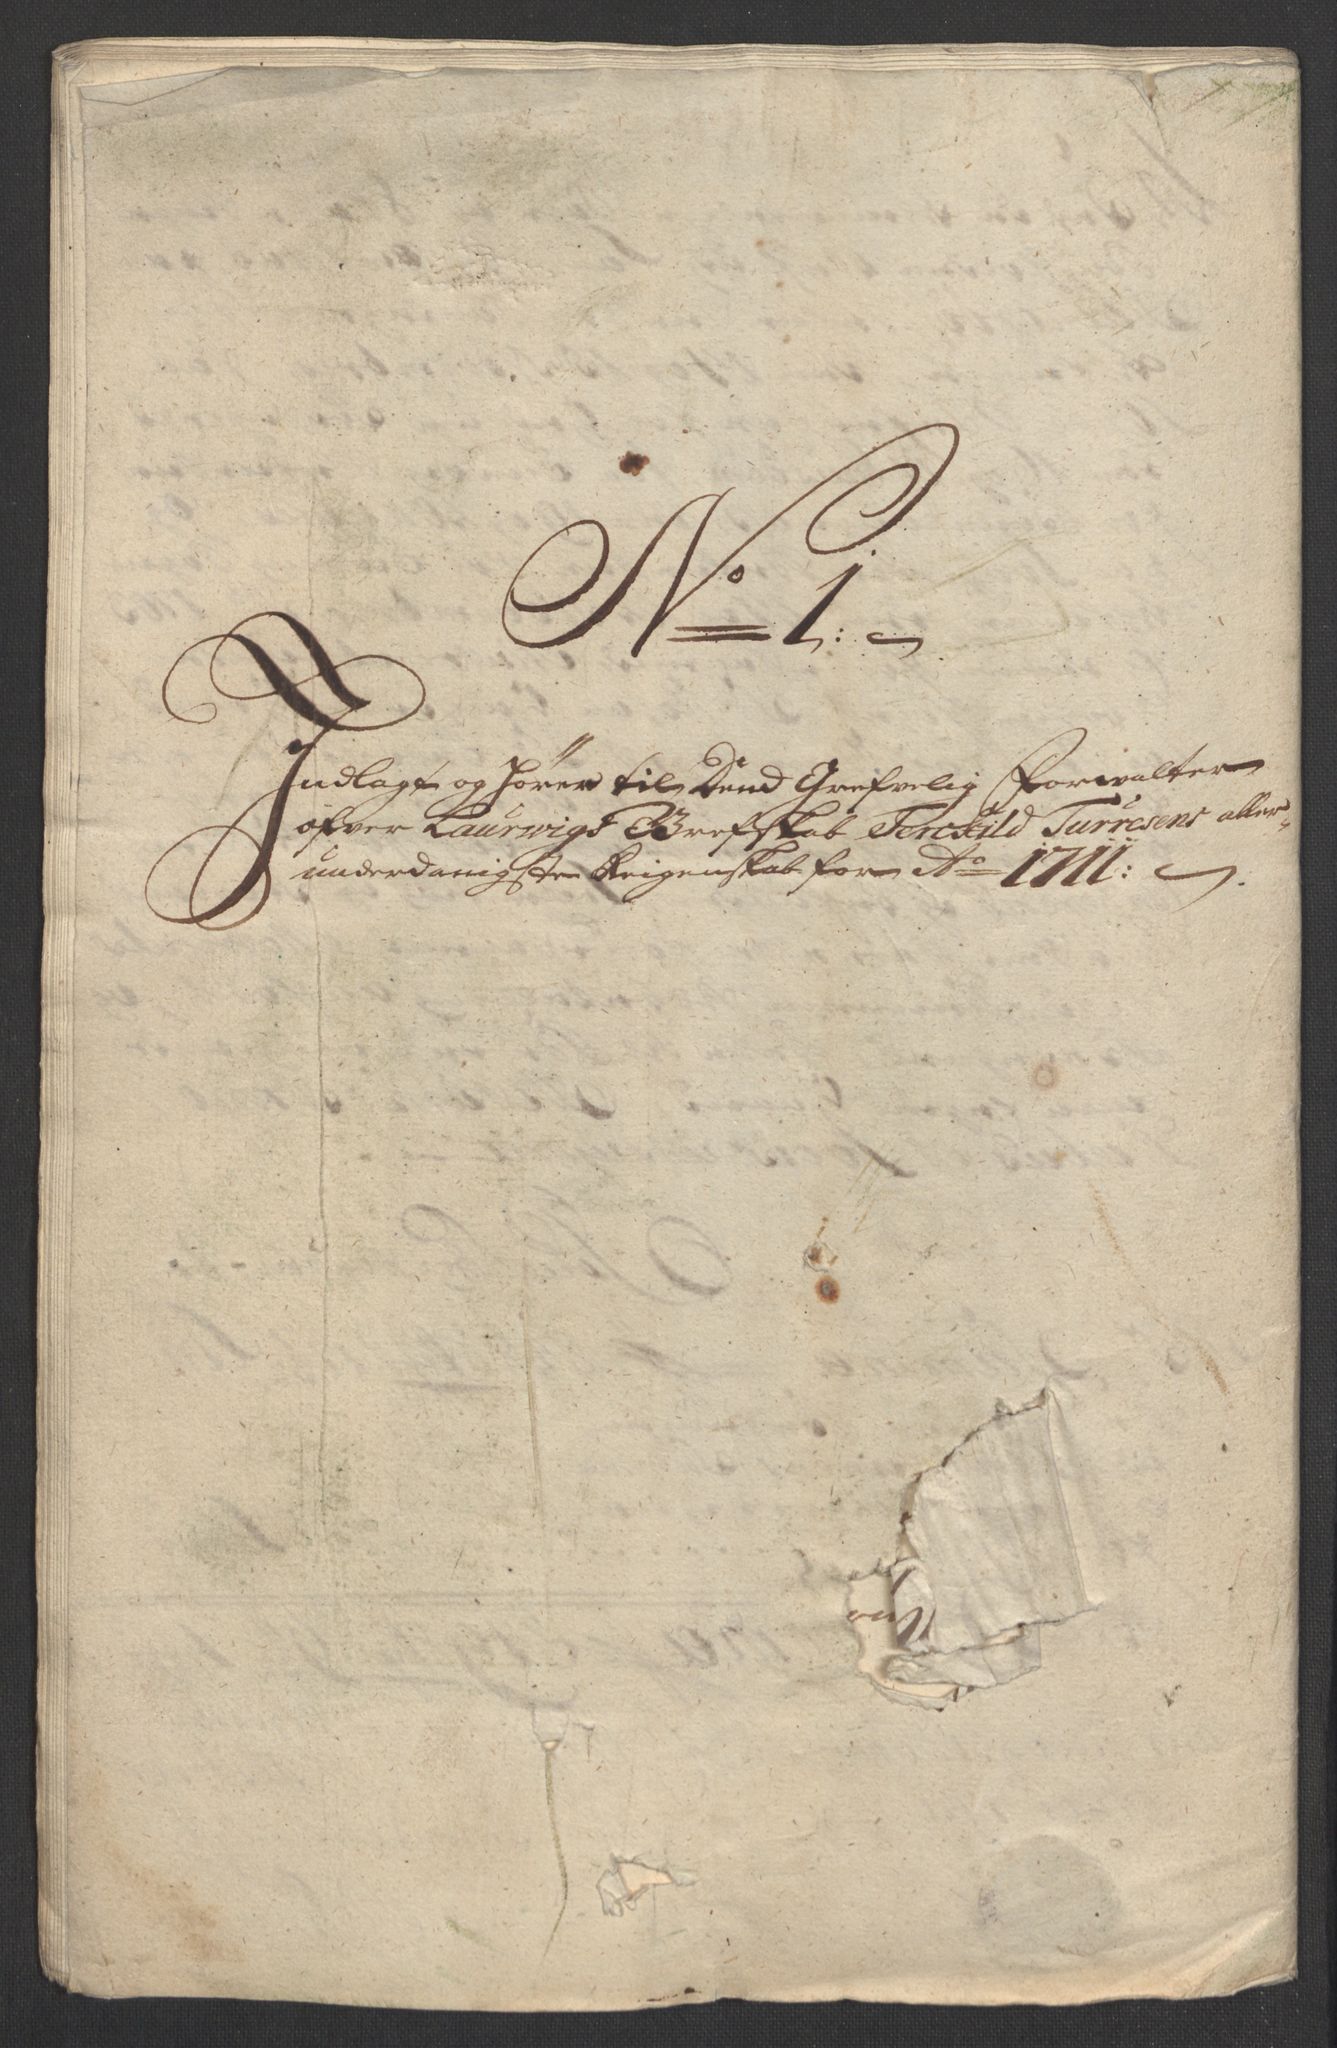 No 1:
Indlagt og hører til Dend Grefvelig Forwalter
ofver Laurwigs Grefskab Terckild Turresens aller
underdanigste Reigenskab for Ao 1711: